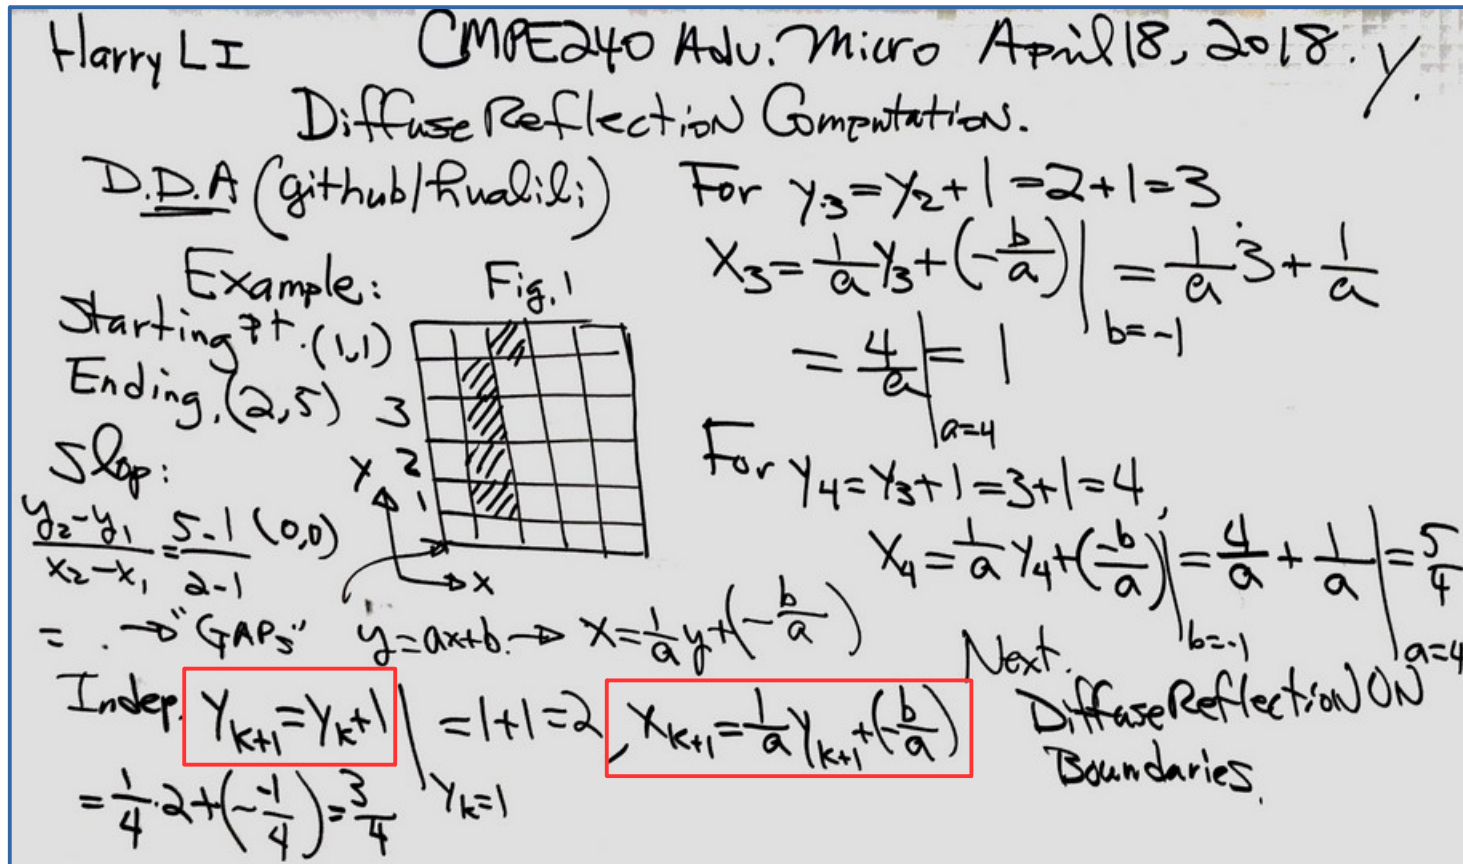 Harry LI CMPE240 Adv. Micro April 18, 2018. Y.
Diffuse Reflection Computation.
D.D.A (github/hualili)
Example: Fig.1
Starting Pt. (1,1)
Ending, (2,5)
3
Slop:
Y 2
1
y₂-y₁/x₂-x₁ = 5-1/2-1 (0,0)
X
= . → "GAPs" y=ax+b. → X=1/a y+(-b/a)
Indep. Yₖ₊₁=Yₖ+1| Yₖ=1 =1+1=2, Xₖ₊₁=1/a Yₖ₊₁+(-b/a)
=1/4·2+(--1/4)=3/4
For y₃=y₂+1=2+1=3
X₃=1/a Y₃+(-b/a)| b=-1 =1/a 3+1/a
=4/a| a=4 =1
For Y₄=Y₃+1=3+1=4,
X₄=1/a Y₄+(-b/a)| b=-1 =4/a+1/a| a=4 =5/4
Next.
Diffuse Reflection ON
Boundaries.